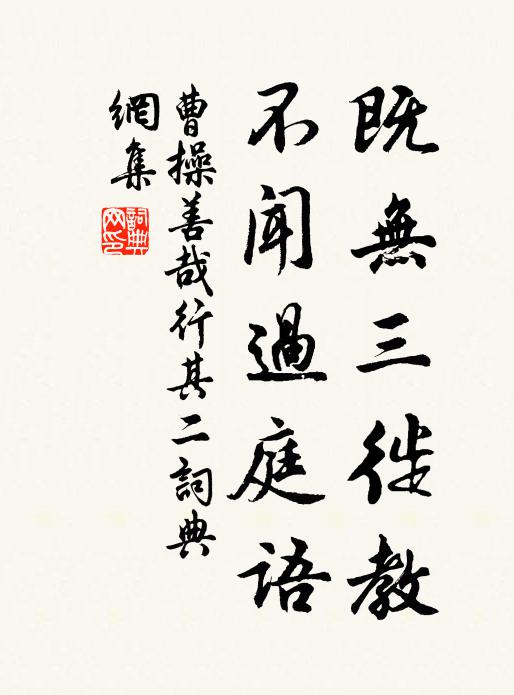 既無三徙教
不聞過庭語
曹操善哉行其二詞典
網集
詞典
网印